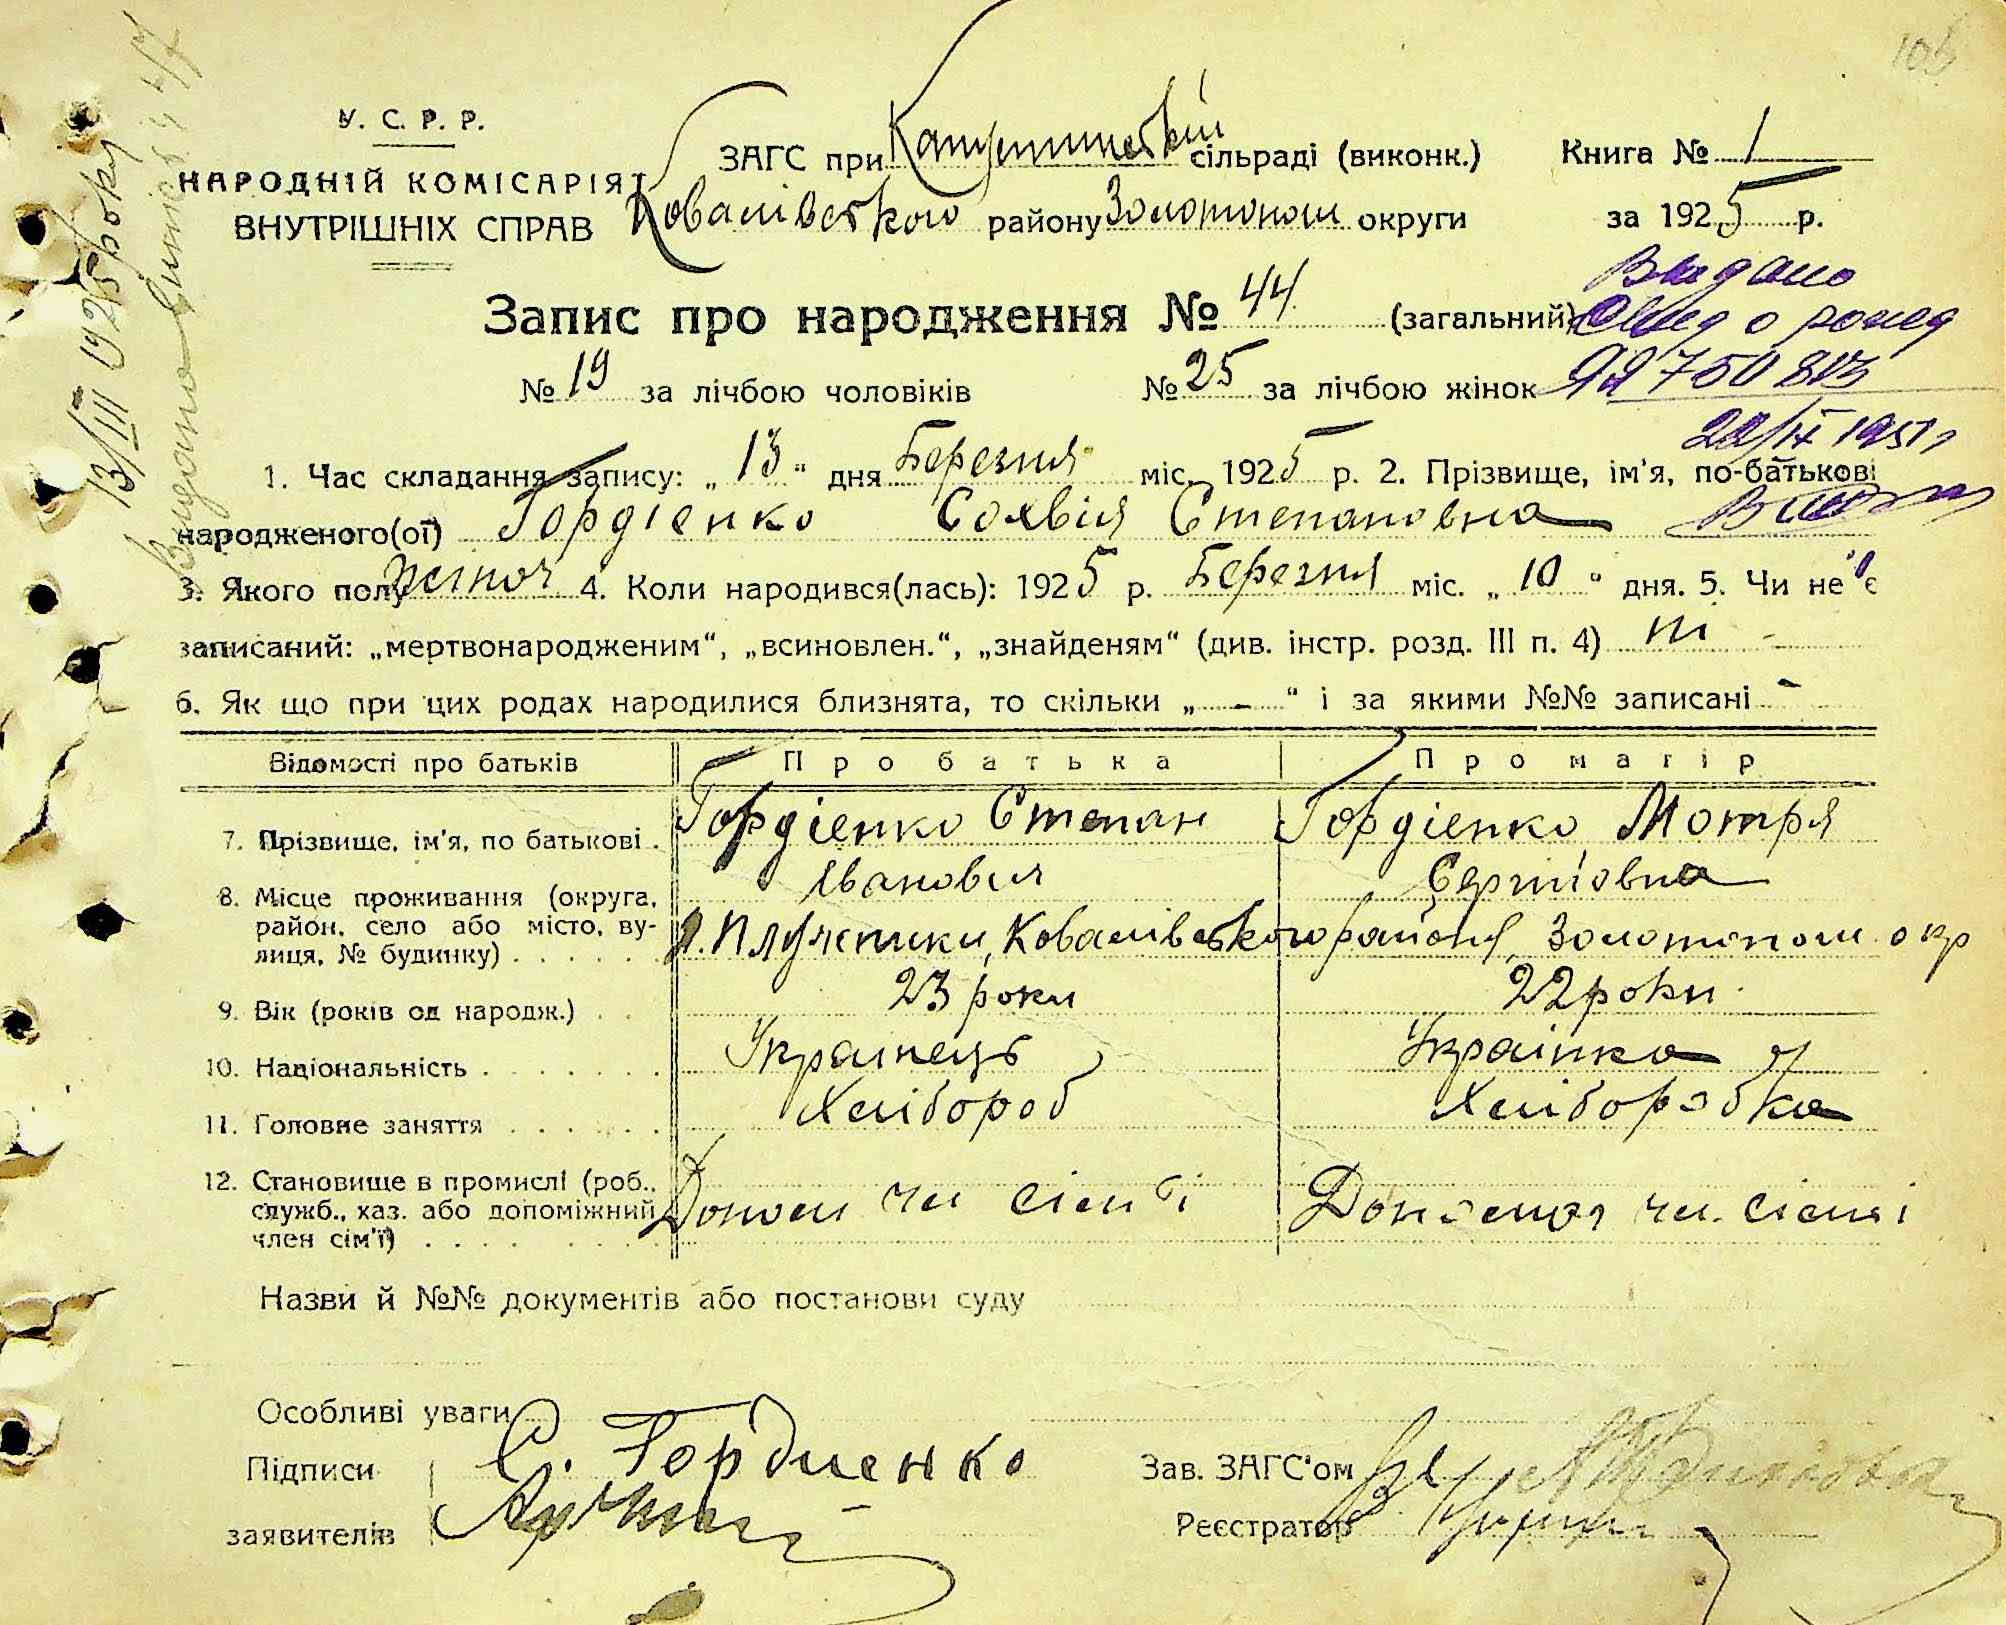 У. С. Р. Р.
НАРОДНІЙ КОМІСАРІЯТ
ВНУТРІШНІХ СПРАВ
ЗАГС при сільраді (виконк.)
Ковалівського району Золотонош округи
Книга № 1
за 1925 р.
105
Запис про народження № 44 (загальний)
№ 19 за лічбою чоловіків № 25 за лічбою жінок
Видано
о рожд
22/IX 1951 г
13/III 1925 року
Видано
1. Час складання запису: „ 13 " дня Березня міс. 1925 р. 2. Прізвище, ім'я, по-батькові
народженого(ої) Гордієнко Сохвія Степановна
3. Якого полу жіноч 4. Коли народився(лась): 1925 р. Березня міс. „ 10 " дня. 5. Чи не є
записаний: „мертвонародженим", „всиновлен.", „знайденям" (див. інстр. розд. III п. 4) ні
6. Як що при цих родах народилися близнята, то скільки „ - " і за якими №№ записані -
Відомості про батьків Про батька Про матір
7. Прізвище, ім'я, по батькові . Гордієнко Степан Гордієнко Мотря
Іванович Сергіївна
8. Місце проживання (округа,
район, село або місто, вулиця, № будинку) . . . . . . Ковалівського района, Золотонош. окр
9. Вік (років од народж.) . . 23 роки 22 роки
10. Національність . . . . . . . Українець Українка
11. Головне заняття . . . . . . Хлібороб Хліборобка
12. Становище в промислі (роб.,
служб., хаз. або допоміжний
член сім'ї) . . . . Допом чл сім'ї Допоможн чл. сім'ї
Назви й №№ документів або постанови суду
Особливі уваги
Підписи
заявителів
С. Гордиенко
Зав. ЗАГС'ом
Реєстратор